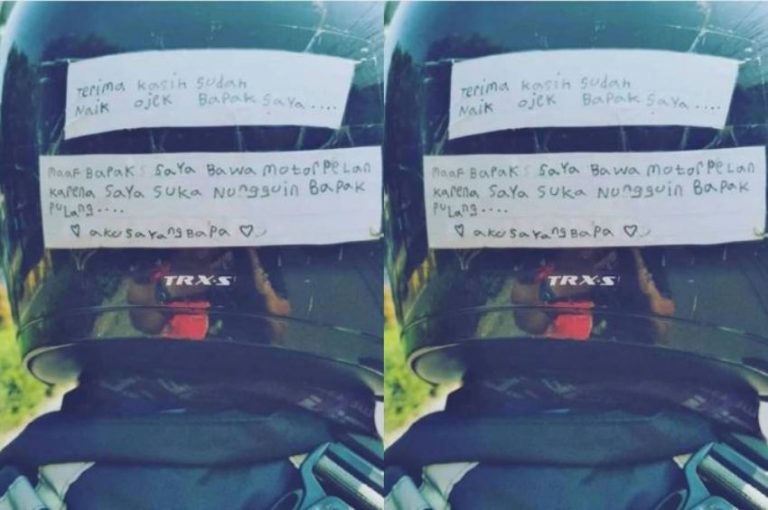 Terima kasih sudah
Naik ojek Bapak saya....
maaf BaPak saya Bawa motor PeLan
karena saya suka Nungguin BaPak
PuLang....
♡ aku sayang BaPa ♡
TRX-S
Terima kasih sudah
Naik ojek Bapak saya....
maaf BaPak saya Bawa motor PeLan
karena saya suka Nungguin BaPak
PuLang....
♡ aku sayang BaPa ♡
TRX-S